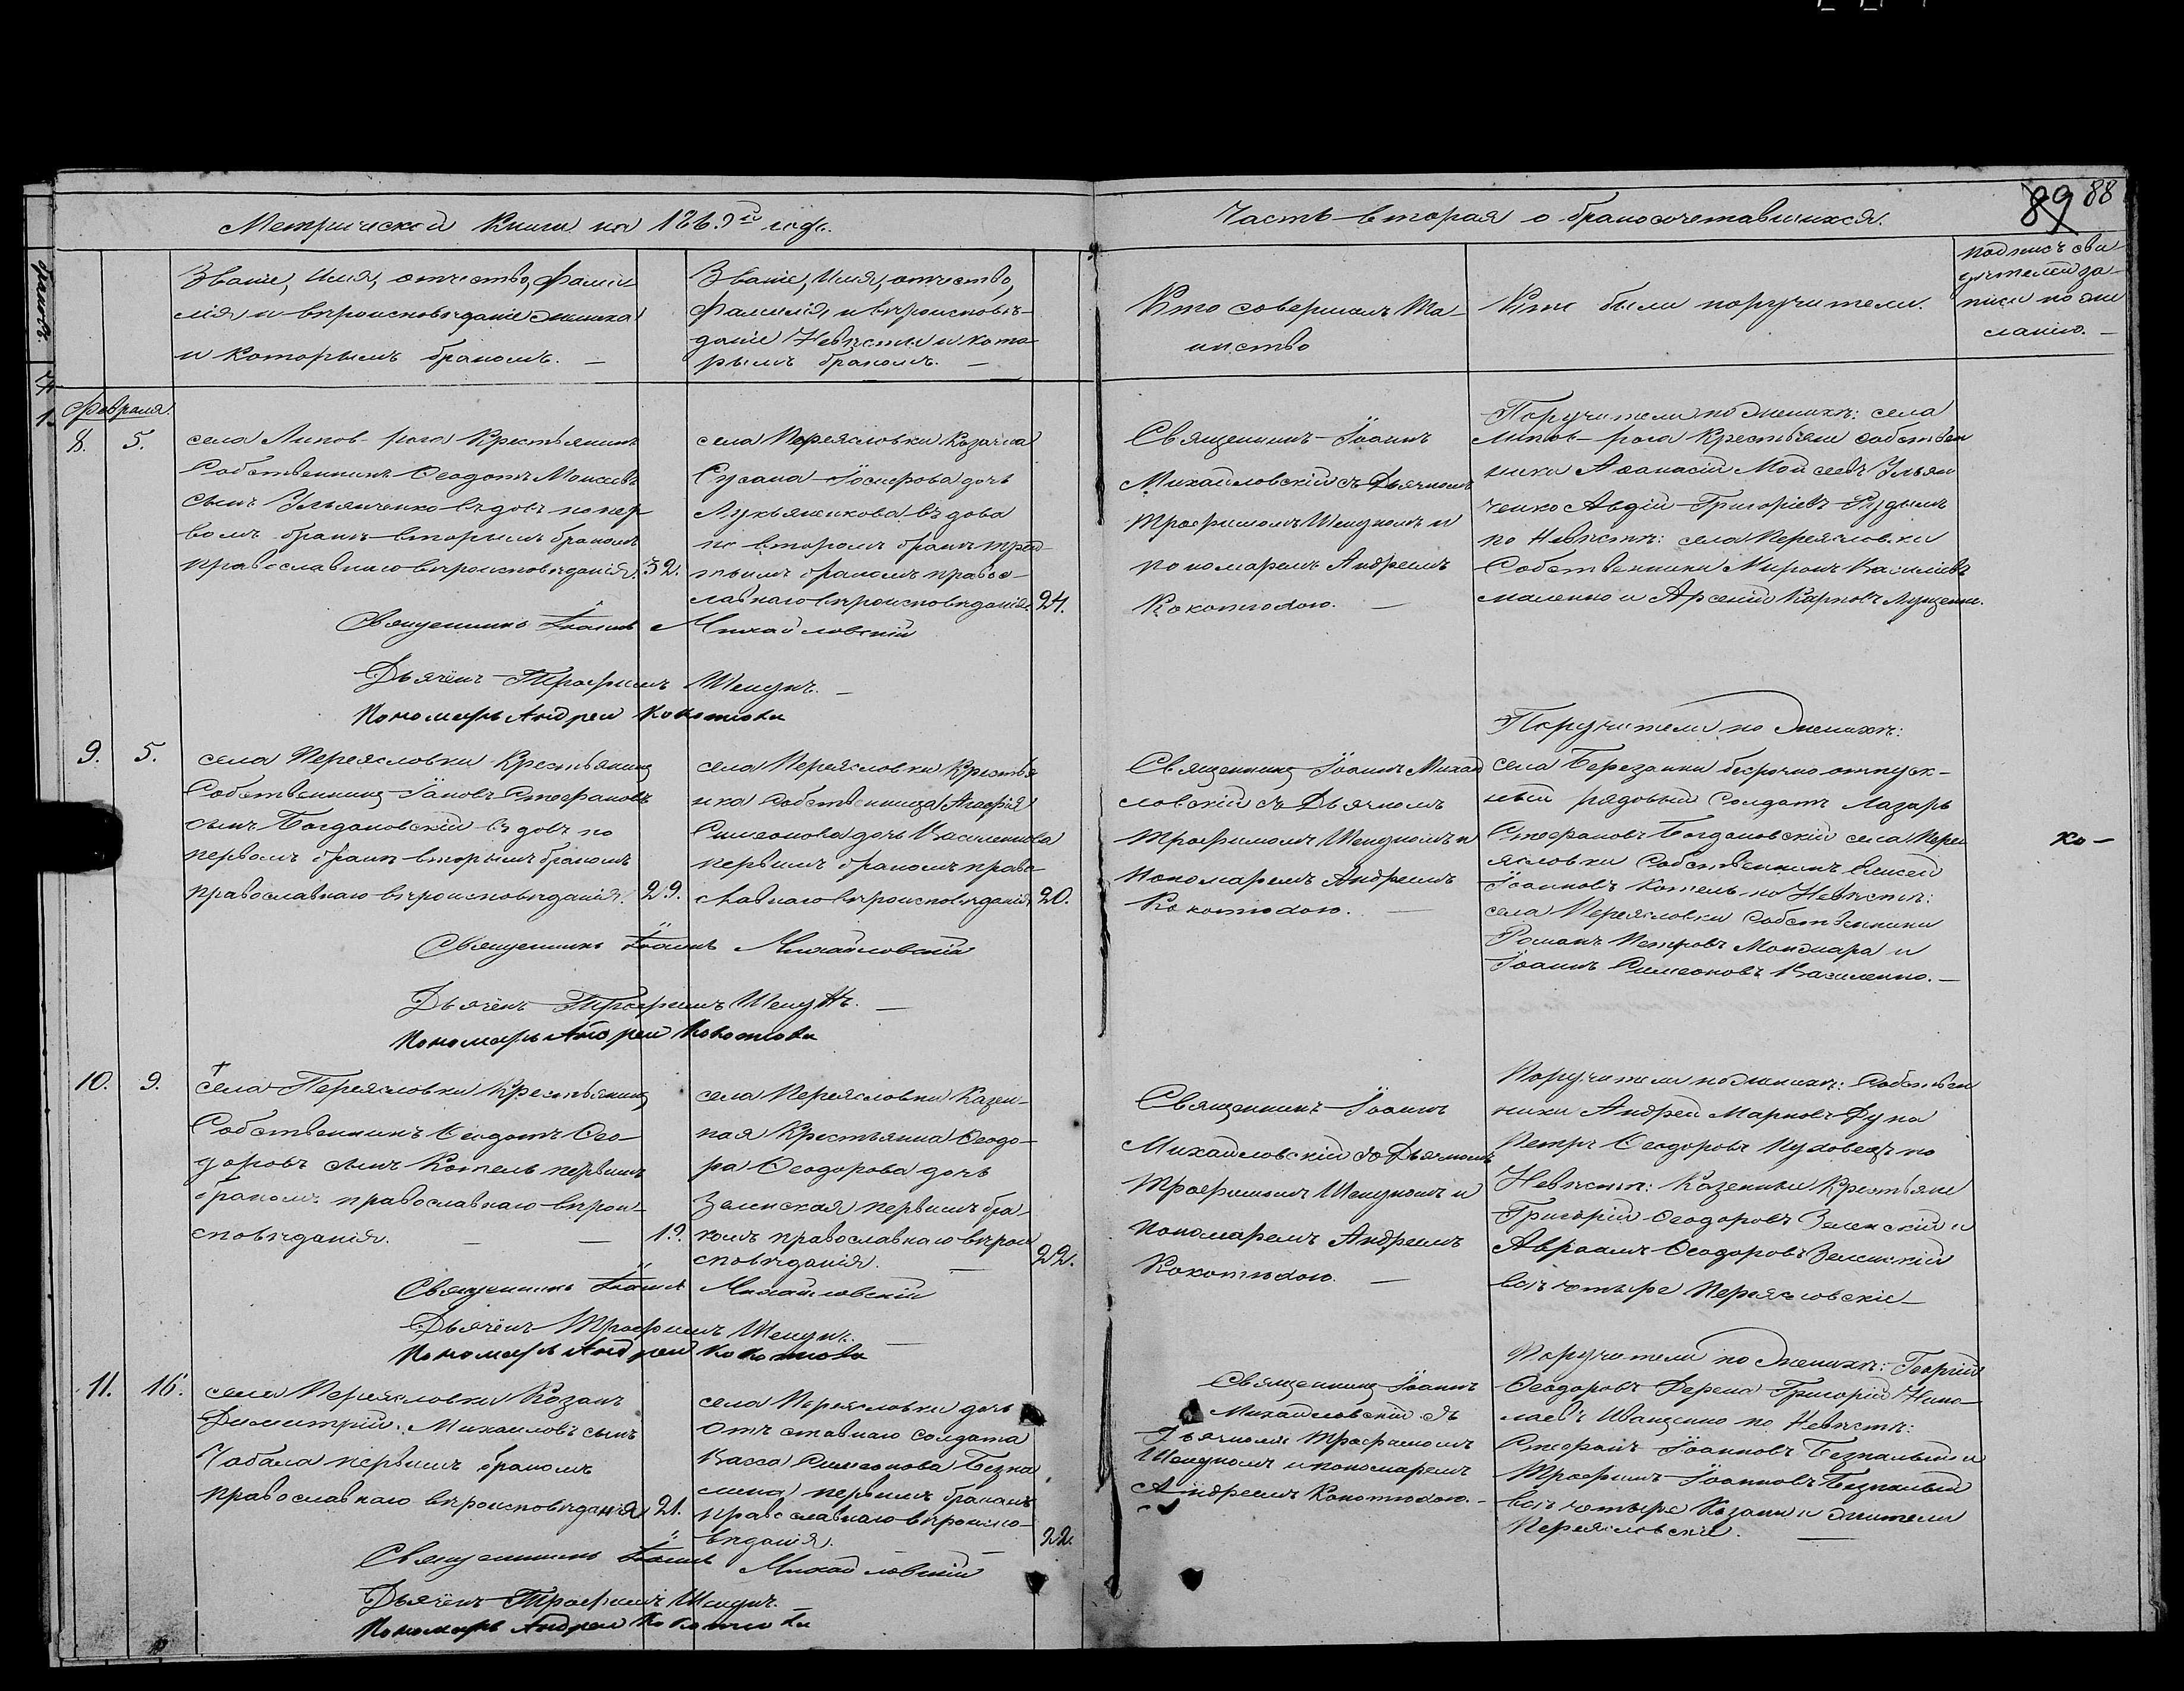 Метрической Книги на 1869й годъ.
Часть вторая о бракосочетавшихся.
89 88
Званіе, Имя, отчество, Фами-
лія и вѣроисповѣданіе жениха
и которымъ бракомъ. —
Званіе, Имя, отчество,
Фамилія и вѣроисповѣ-
даніе Невѣсты и кото-
рымъ бракомъ. —
Кто совершалъ Та-
инство
Кто были поручители.
Подпись сви-
дѣтелей за-
писи по же-
ланію. —
Февраля
8. 5.
села Липов-рога Крестьянинъ
Собственникъ Ѳеодотъ Моисеевъ
сынъ Ульянченко вдовъ по пер-
вомъ бракѣ вторымъ бракомъ
православнаго вѣроисповѣданія. 32.
села Переясловки Козачка
Сусана Іосифова дочь
Лукьяненкова вдова
по второмъ бракѣ трет-
тьимъ бракомъ правос-
лавнаго вѣроисповѣданія. 24.
Священникъ Іоаннъ
Михайловскій съ Дьячкомъ
Трофимомъ Шендюкомъ и
пономаремъ Андреемъ
Кокотюхою. —
Поручители по женихѣ: села
Липов-рога Крестьяне собствен
ники Аѳанасій Мойсеевъ Ульян
ченко Авдій Григоріевъ
по Невѣстѣ: села Переясловки
Собственники Миронъ Василіевъ
и Арсеній Карповъ
Священникъ Іоаннъ Михайловскій
Дьячекъ Трофимъ
Пономарь Андрей Кокотюха
9. 5.
села Переясловки Крестьянинъ
Собственникъ Іаковъ Стефановъ
сынъ Богдановскій вдовъ по
первомъ бракѣ вторымъ бракомъ
православнаго вѣроисповѣданія. 29.
села Переясловки Крестья
нка Собственница Агафія
Симеонова дочь Василенкова
первымъ бракомъ право-
славнаго вѣроисповѣданія 20.
Священникъ Іоаннъ Михай
ловскій съ Дьячкомъ
Трофимомъ и
Пономаремъ Андреемъ
Кокотюхою. —
Поручители по женихѣ:
села Березанки безсрочно-отпуск-
ный рядовый Солдатъ Лазарь
Стефановъ Богдановскій села Пере
ясловки Собственникъ Елисей
Іоанновъ Котель по Невѣстѣ:
села Переясловки Собственники
Романъ Петровъ и
Іоаннъ Симеоновъ Василенко. —
Ко —
Священникъ Іоаннъ Михайловскій
Дьячекъ Трофимъ
Пономарь Андрей Кокотюха
10. 9.
села Переясловки Крестьянинъ
Собственникъ Ѳеодотъ Ѳео-
доровъ сынъ Котель первымъ
бракомъ православнаго вѣрои-
сповѣданія. — — 19.
села Переясловки Казен-
ная Крестьянка Ѳеодо-
ра Ѳеодорова дочь
Зеленская первымъ бра-
комъ православнаго вѣрои
сповѣданія. — 22.
Священникъ Іоаннъ
Михайловскій съ Дьячкомъ
Трофимомъ и
Пономаремъ Андреемъ
Кокотюхою. —
Поручители по женихѣ: Собствен
ники Андрей Марковъ
Петръ Ѳеодоровъ по
Невѣстѣ: Казенные Крестьяне
Григорій Ѳеодоровъ Зеленскій и
Авраамъ Ѳеодоровъ Зеленскій
всѣ четыре Переясловскіе —
Священникъ Іоаннъ Михайловскій
Дьячекъ Трофимъ
Пономарь Андрей Кокотюха
11. 16.
села Переясловки Козакъ
Димитрій Михаиловъ сынъ
Чабала первымъ бракомъ
православнаго вѣроисповѣданія 21.
села Переясловки дочь
Отъ ставнаго солдата
Васса Симеонова
первымъ бракомъ
православнаго вѣроиспо-
вѣданія. — 22.
Священникъ Іоаннъ
Михайловскій съ
Дьячкомъ Трофимомъ
и пономаремъ
Андреемъ Кокотюхою. —
Поручители по женихѣ: Георгій
Ѳеодоровъ Григорій Нико-
лаевъ Иващенко по Невѣстѣ:
Стефанъ Іоанновъ и
Трофимъ Іоанновъ
всѣ четыре Козаки и жители
Переясловскіе. —
Священникъ Іоаннъ Михайловскій
Дьячекъ Трофимъ
Пономарь Андрей Кокотюха